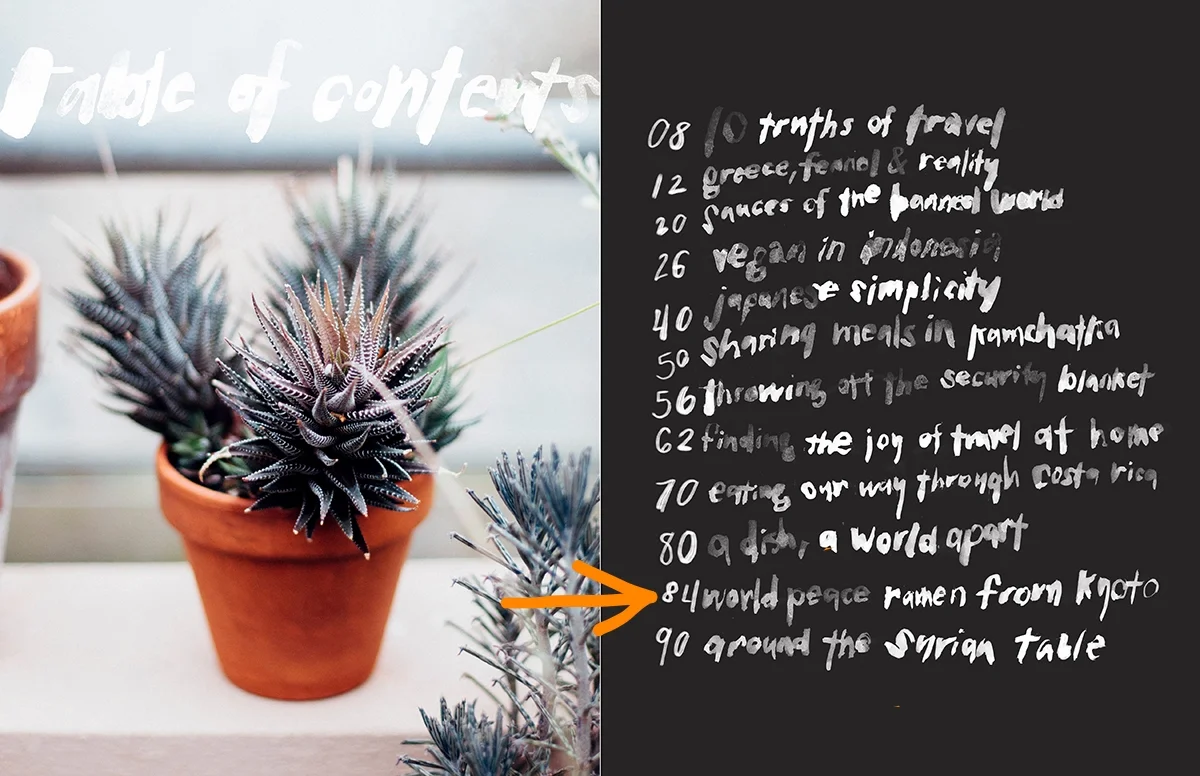 table of contents
08 10 truths of travel
12 greece, fennel & reality
20 sauces of the banned world
26 vegan in indonesia
40 japanese simplicity
50 sharing meals in kamchatka
56 throwing off the security blanket
62 finding the joy of travel at home
70 eating our way through costa rica
80 a dish, a world apart
84 world peace ramen from kyoto
90 around the syrian table